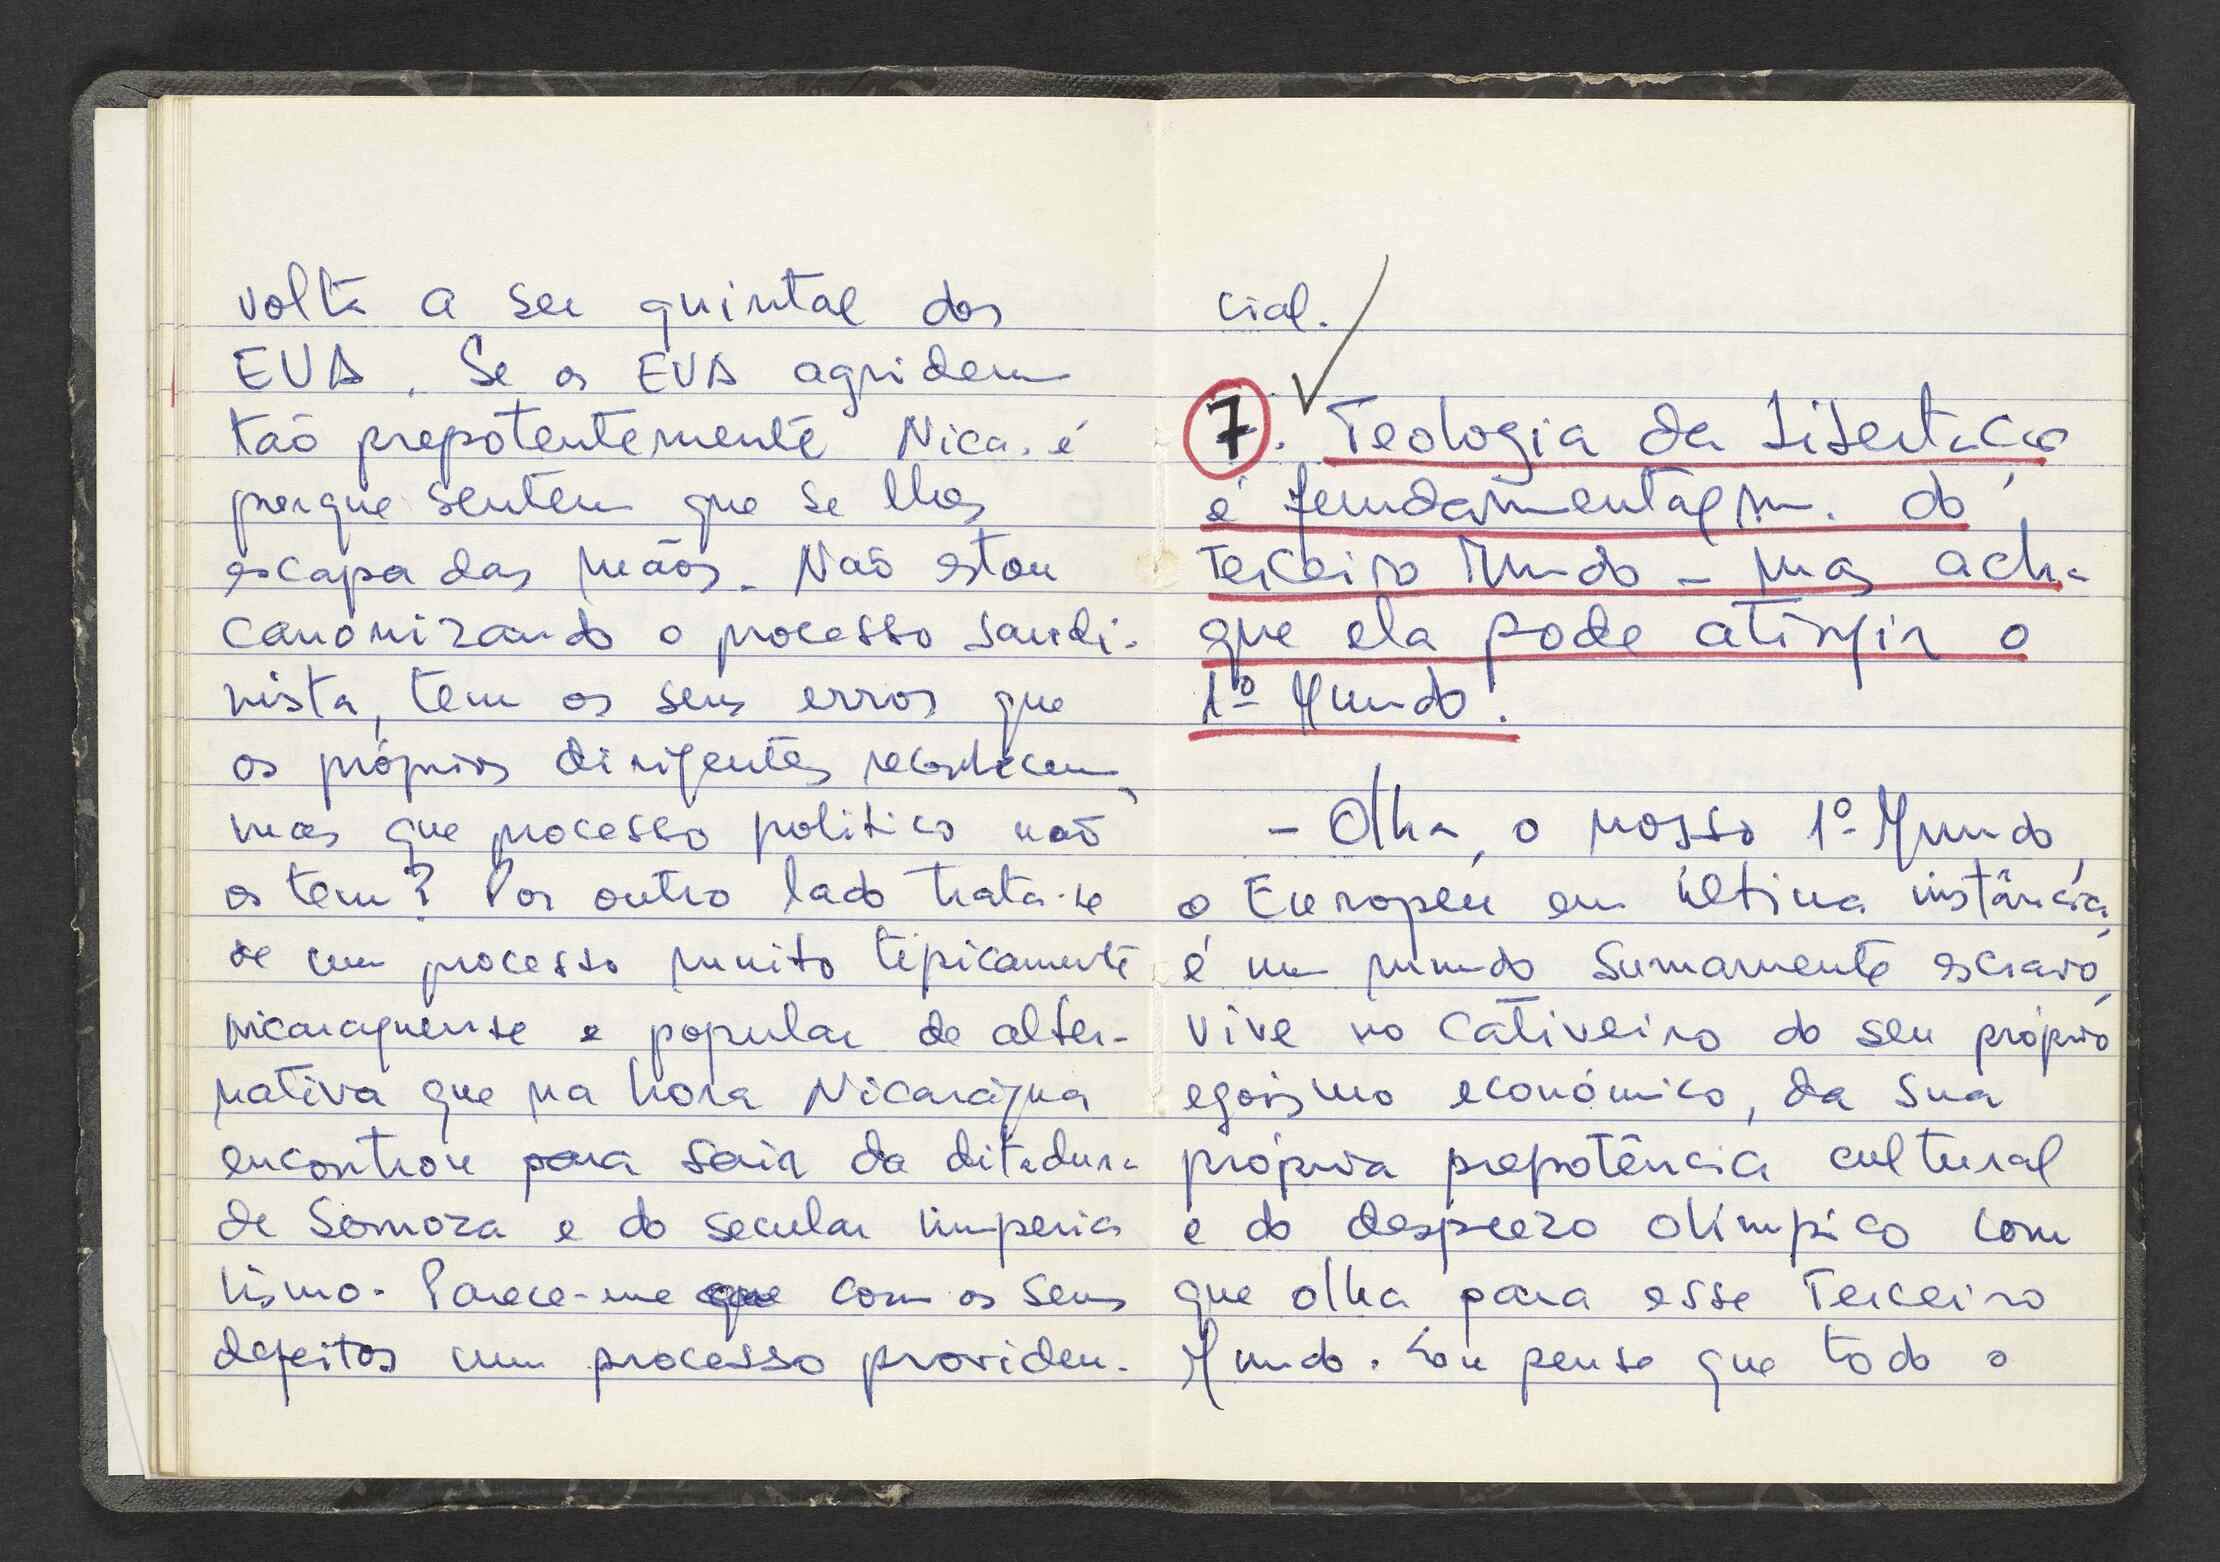 volta a ser quintal dos
EUA. Se os EUA agridem
tão prepotentemente Nica. é
porque sentem que se lhes
escapa das mãos. Não estou
canonizando o processo sandi-
nista, tem os seus erros que
os próprios dirigentes reconhecem,
mas que processo politico não
os tem? Por outro lado trata-se
de um processo muito tipicamente
nicaraguense e popular de alter-
nativa que na hora Nicarágua
encontrou para sair da ditadura
de Somoza e do secular imperia
lismo. Parece-me que com os seus
defeitos um processo providen-
cial.
7. Teologia da Libertação
é fundamentalm. do
Terceiro Mundo - mas acha
que ela pode atingir o
1º Mundo.
- Olha, o nosso 1º Mundo,
o Europeu em última instância,
é um mundo sumamente escravo,
vive no cativeiro do seu próprio
egoismo económico, da sua
própria prepotência cultural
e do desprezo olímpico com
que olha para esse Terceiro
Mundo. Eu penso que todo o